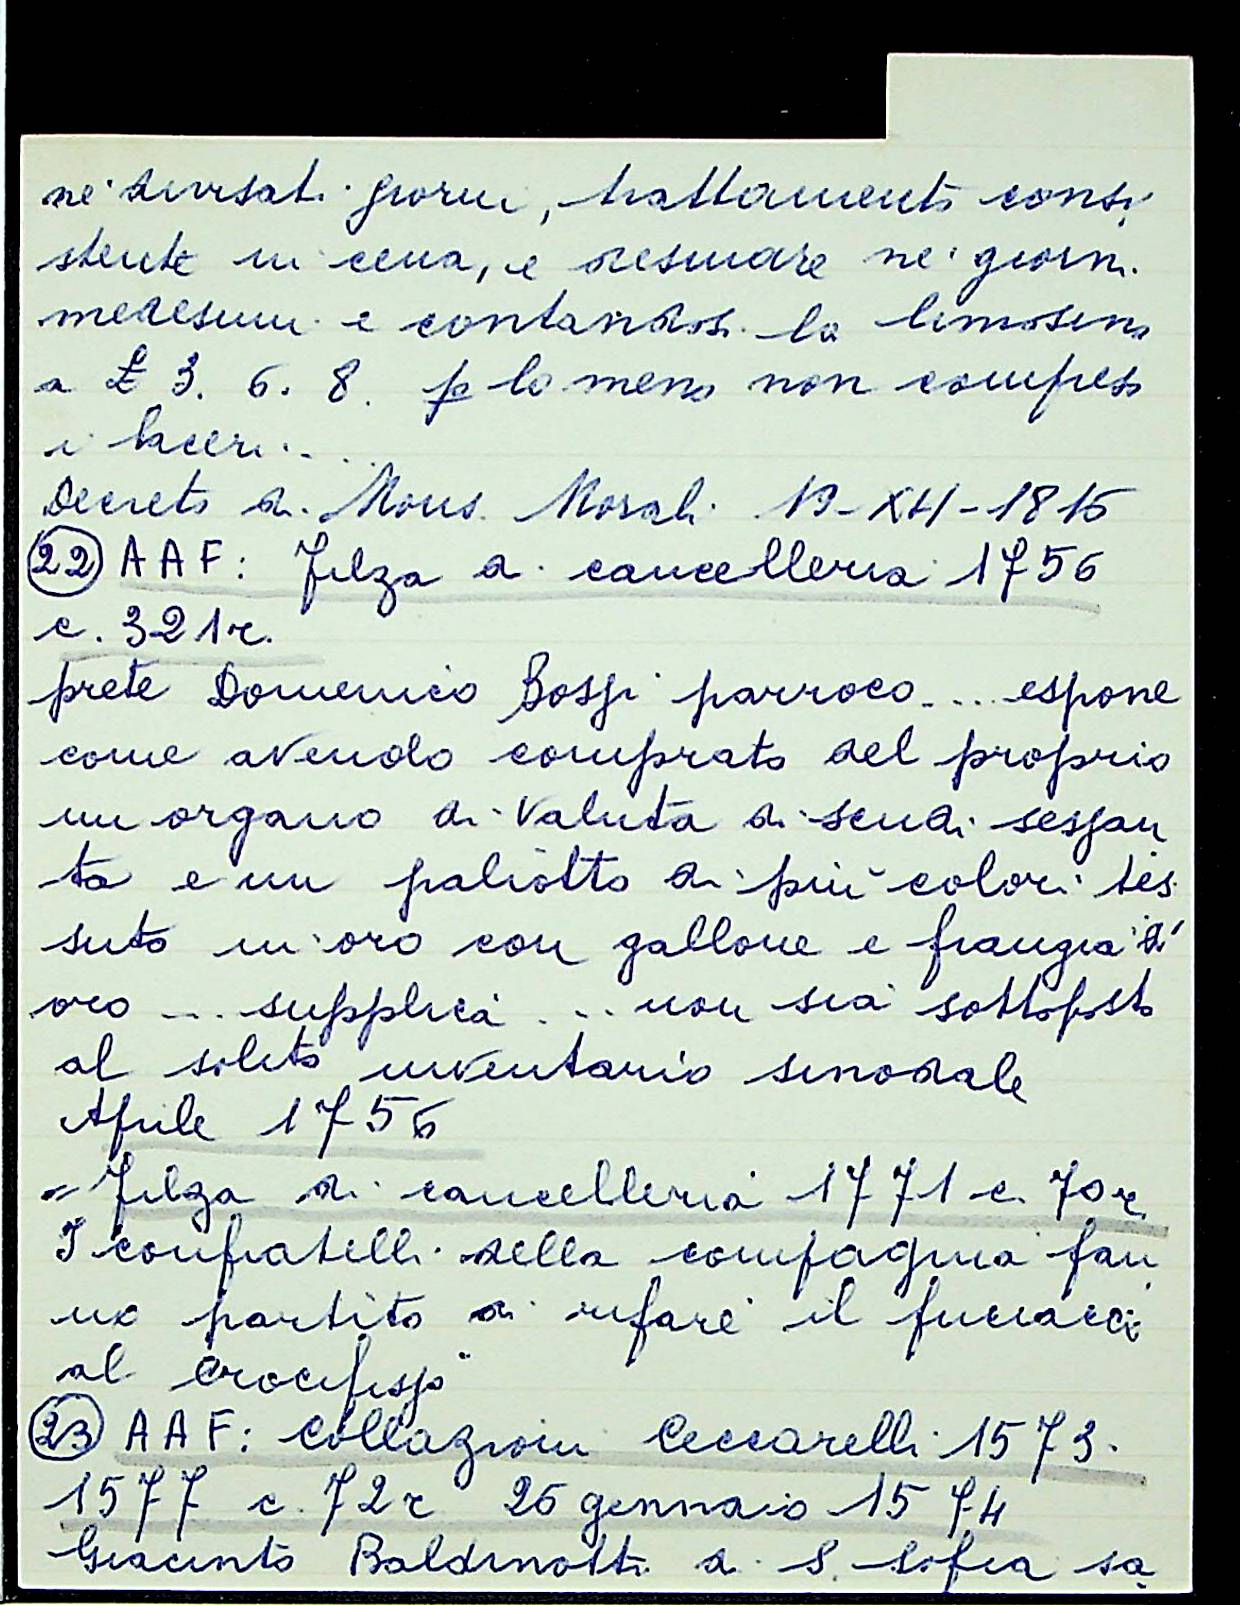 ne' divisati giorni, trattamento consi
stente in cena, e desinare ne' giorni
medesimi e contandosi la limosina
a £ 3. 6. 8. p lo meno non compresi
i laceri....
Decreto di Mons. Morali 19-XII-1816
(22) AAF: Filza di cancelleria 1756
c. 321r.
prete Domenico Bossi parroco.... espone
come avendo comprato del proprio
un organo di valuta di scudi sessan
ta e un paliotto di più colori tes
suto in oro con gallone e frangia d'
oro .... supplica ... non sia sottoposto
al solito inventario sinodale
Aprile 1756
= Filza di cancelleria 1771 c. 70r.
I confratelli della compagnia fan
no partito di rifare il
al Crocifisso"
(23) AAF: Collazioni Ceccarelli 1573.
1577 c. 72r 26 gennaio 1574
Giacinto Baldinotti di S. Sofia sa